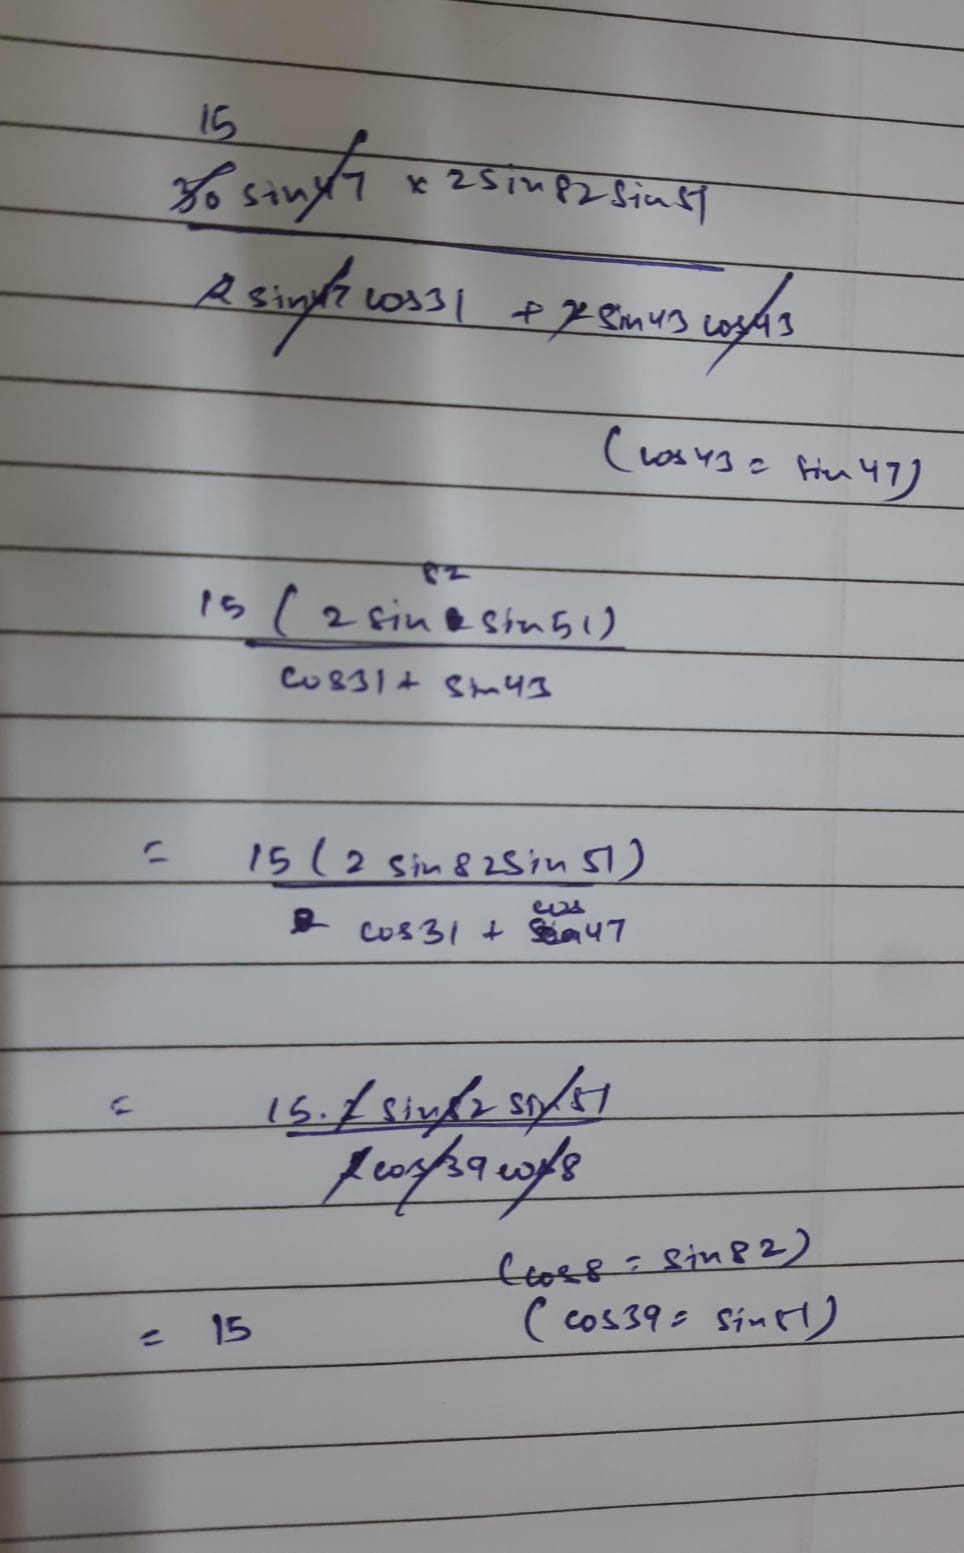 15
30 sin47 × 2 sin82 sin51
2 sin47 cos31 + 2 sin43 cos43
(cos43 = sin47)
82
15 (2 sin sin51)
cos31 + sin43
= 15 (2 sin82 sin51)
cos
cos31 + 47
= 15. 2 sin82 sin51
2 cos39 cos8
(cos8 = sin82)
= 15 (cos39 = sin51)